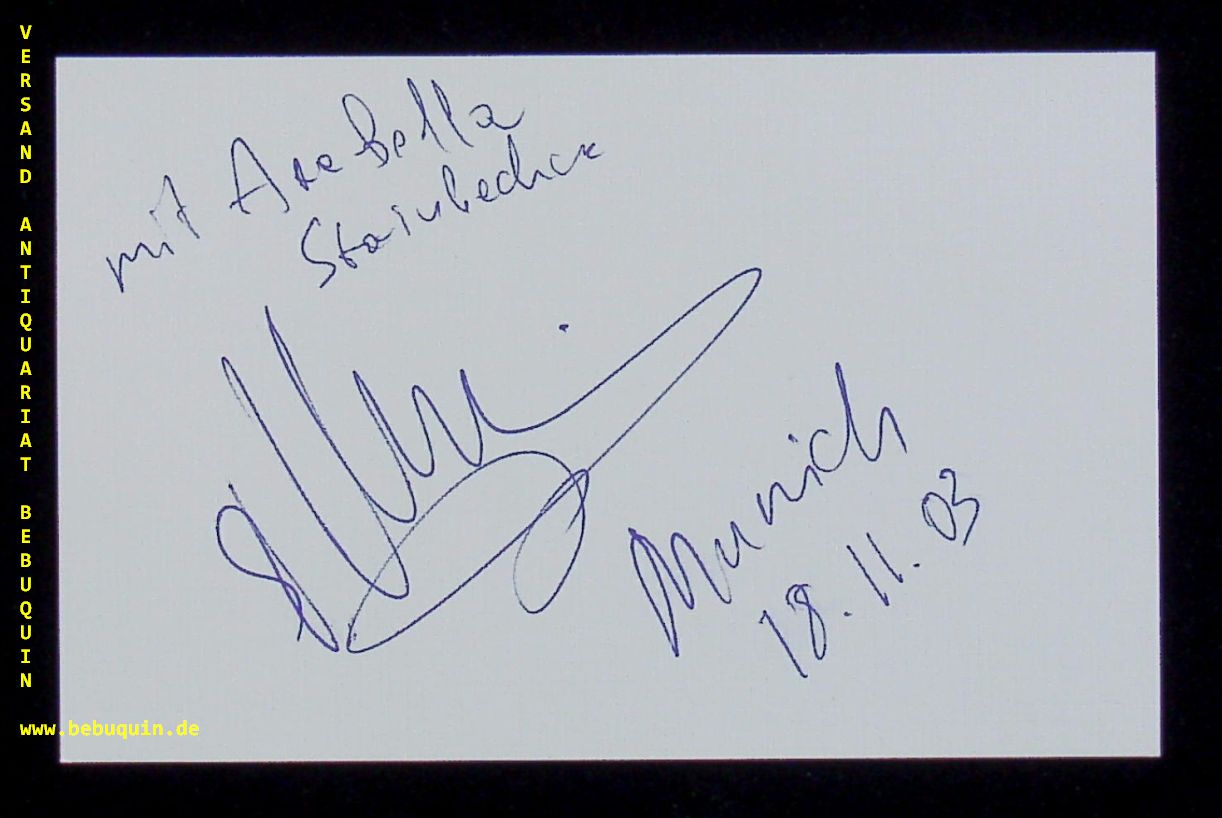 VERSAND ANTIQUARIAT BEBUQUIN
www.bebuquin.de
mit Arabella
Steinbecher
Munich
18.11.03